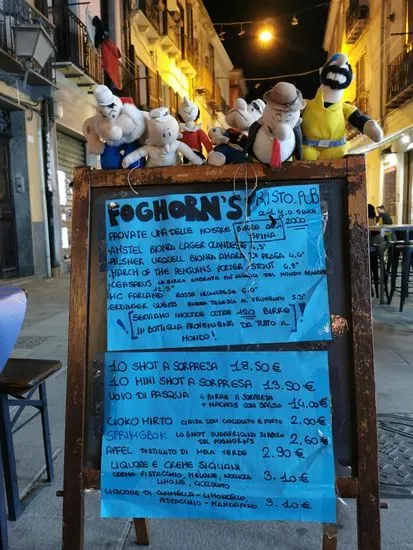 FOGHORN'S RISTO.PUB
2.1.4.0 SINCE 2000
PROVATE UNA DELLE NOSTRE BIRRE ALLA SPINA
• AMSTEL BIONDA LAGER OLANDESE 4,5°
• PILSNER URQUELL BIONDA AMARA DI PRAGA 4,6°
• MARCH OF THE PENGUINS POTER STOUT 4,9°
• CERSARUS LA BIRRA AMBRATA PIÙ DEL MONDO
12.5°
• MC FARLAND ROSSA IRLANDESE 6.0°
• ERDINGER TEDESCA AL FRUMENTO 5.3°
! SERVIAMO INOLTRE OLTRE 120 BIRRE
IN BOTTIGLIA PROVENIENTI DA TUTTO IL
MONDO!
10 SHOT A SORPRESA 18.50 €
10 MINI SHOT A SORPRESA 13.50 €
UOVO DI PASQUA 4 BIRRE A SORPRESA
+ NACHOS CON SALSA 14.00 €
CIOKO MIRTO CIALDA CON CIOCCOLATO E MIRTO 2.00 €
SPRINGBOK LO SHOT SUDAFRICANO SIMBOLO
DEL FOGHORN'S 2.60 €
APFEL DISTILLATO DI MELA VERDE 2.90 €
LIQUORI E CREME SICILIANI
CREMA PISTACCHIO, MELONE, NOCCIOLA 3.10 €
LIMONE, CIOCCOLATO
LIQUORE DI CANNELLA - LIMONCELLO,
PISTACCHIO - MANDARINO 3.10 €